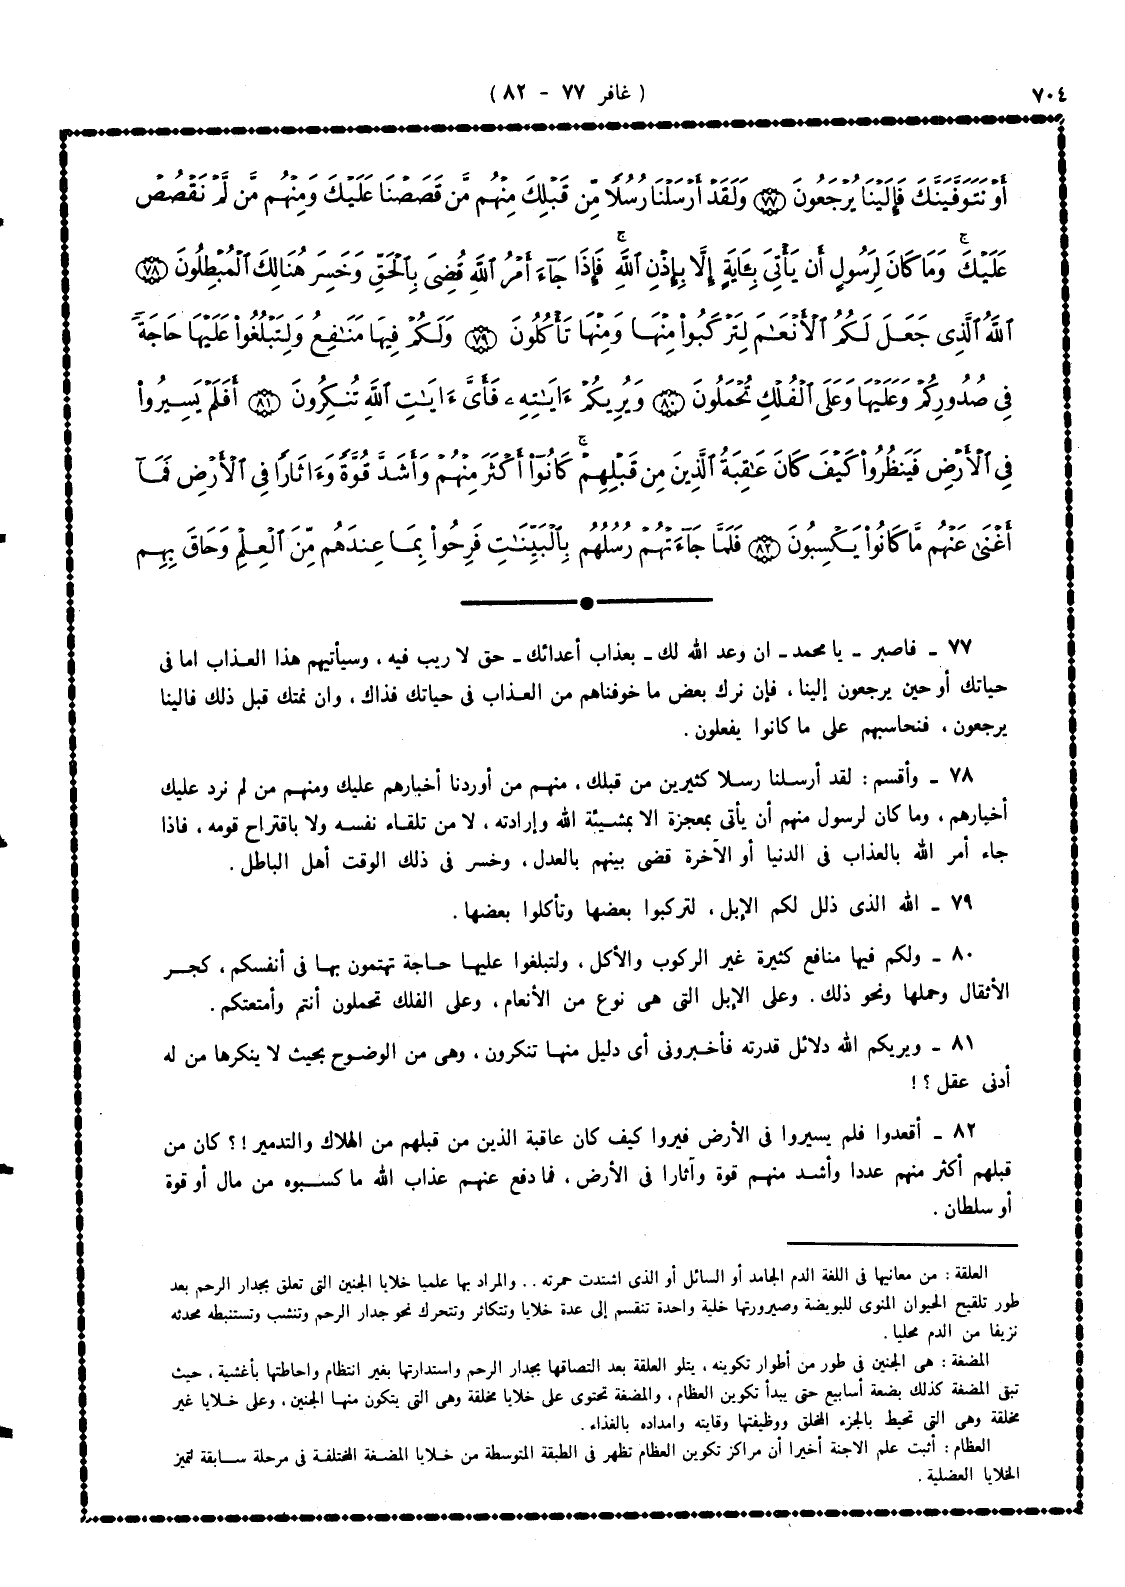 ٧٠٤
( غافر ٧٧ - ٨٢ )
أَوْ نَتَوَفَّيَنَّكَ فَإِلَيْنَا يُرْجَعُونَ ٧٧ وَلَقَدْ أَرْسَلْنَا رُسُلًا مِّن قَبْلِكَ مِنْهُم مَّن قَصَصْنَا عَلَيْكَ وَمِنْهُم مَّن لَّمْ نَقْصُصْ
عَلَيْكَ ۗ وَمَا كَانَ لِرَسُولٍ أَن يَأْتِىَ بِـَٔايَةٍ إِلَّا بِإِذْنِ ٱللَّهِ ۚ فَإِذَا جَآءَ أَمْرُ ٱللَّهِ قُضِىَ بِٱلْحَقِّ وَخَسِرَ هُنَالِكَ ٱلْمُبْطِلُونَ ٧٨
ٱللَّهُ ٱلَّذِى جَعَلَ لَكُمُ ٱلْأَنْعَـٰمَ لِتَرْكَبُوا۟ مِنْهَا وَمِنْهَا تَأْكُلُونَ ٧٩ وَلَكُمْ فِيهَا مَنَـٰفِعُ وَلِتَبْلُغُوا۟ عَلَيْهَا حَاجَةً
فِى صُدُورِكُمْ وَعَلَيْهَا وَعَلَى ٱلْفُلْكِ تُحْمَلُونَ ٨٠ وَيُرِيكُمْ ءَايَـٰتِهِۦ فَأَىَّ ءَايَـٰتِ ٱللَّهِ تُنكِرُونَ ٨١ أَفَلَمْ يَسِيرُوا۟
فِى ٱلْأَرْضِ فَيَنظُرُوا۟ كَيْفَ كَانَ عَـٰقِبَةُ ٱلَّذِينَ مِن قَبْلِهِمْ ۚ كَانُوٓا۟ أَكْثَرَ مِنْهُمْ وَأَشَدَّ قُوَّةً وَءَاثَارًا فِى ٱلْأَرْضِ فَمَآ
أَغْنَىٰ عَنْهُم مَّا كَانُوا۟ يَكْسِبُونَ ٨٢ فَلَمَّا جَآءَتْهُمْ رُسُلُهُم بِٱلْبَيِّنَـٰتِ فَرِحُوا۟ بِمَا عِندَهُم مِّنَ ٱلْعِلْمِ وَحَاقَ بِهِم
٧٧ ـ فاصبر ـ يا محمد ـ ان وعد الله لك ـ بعذاب أعدائك ـ حق لا ريب فيه ، وسيأتيهم هذا العذاب اما فى
حياتك أو حين يرجعون إلينا ، فإن نرك بعض ما خوفناهم من العذاب فى حياتك فذاك ، وان نمتك قبل ذلك فالينا
يرجعون ، فنحاسبهم على ما كانوا يفعلون .
٧٨ ـ وأقسم : لقد أرسلنا رسلا كثيرين من قبلك ، منهم من أوردنا أخبارهم عليك ومنهم من لم نرد عليك
أخبارهم ، وما كان لرسول منهم أن يأتى بمعجزة الا بمشيئة الله وإرادته ، لا من تلقاء نفسه ولا باقتراح قومه ، فاذا
جاء أمر الله بالعذاب فى الدنيا أو الآخرة قضى بينهم بالعدل ، وخسر فى ذلك الوقت أهل الباطل .
٧٩ ـ الله الذى ذلل لكم الإبل ، لتركبوا بعضها وتأكلوا بعضها .
٨٠ ـ ولكم فيها منافع كثيرة غير الركوب والأكل ، ولتبلغوا عليها حاجة تهتمون بها فى أنفسكم ، كجر
الأثقال وحملها ونحو ذلك . وعلى الإبل التى هى نوع من الأنعام ، وعلى الفلك تحملون أنتم وأمتعتكم .
٨١ ـ ويريكم الله دلائل قدرته فأخبرونى أى دليل منها تنكرون ، وهى من الوضوح بحيث لا ينكرها من له
أدنى عقل ؟ !
٨٢ ـ أقعدوا فلم يسيروا فى الأرض فيروا كيف كان عاقبة الذين من قبلهم من الهلاك والتدمير ! ؟ كان من
قبلهم أكثر منهم عددا وأشد منهم قوة وآثارا فى الأرض ، فما دفع عنهم عذاب الله ما كسبوه من مال أو قوة
أو سلطان .
العلقة : من معانيها فى اللغة الدم الجامد أو السائل أو الذى اشتدت حمرته .. والمراد بها علميا خلايا الجنين التى تعلق بجدار الرحم بعد
طور تلقيح الحيوان المنوى للبويضة وصيرورتها خلية واحدة تنقسم إلى عدة خلايا وتتكاثر وتتحرك نحو جدار الرحم وتنشب وتستنبطه محدثه
نزيفا من الدم محليا .
المضغة : هى الجنين فى طور من أطوار تكوينه ، يتلو العلقة بعد التصاقها بجدار الرحم واستدارتها بغير انتظام واحاطتها بأغشية ، حيث
تبقى المضغة كذلك بضعة أسابيع حتى يبدأ تكوين العظام ، والمضغة تحتوى على خلايا مخلقة وهى التى يتكون منها الجنين ، وعلى خلايا غير
مخلقة وهى التى تحيط بالجزء المخلق ووظيفتها وقايته وامداده بالغذاء .
العظام : أثبت علم الاجنة أخيرا أن مراكز تكوين العظام تظهر فى الطبقة المتوسطة من خلايا المضغة المختلفة فى مرحلة سابقة لتميز
الخلايا العضلية .